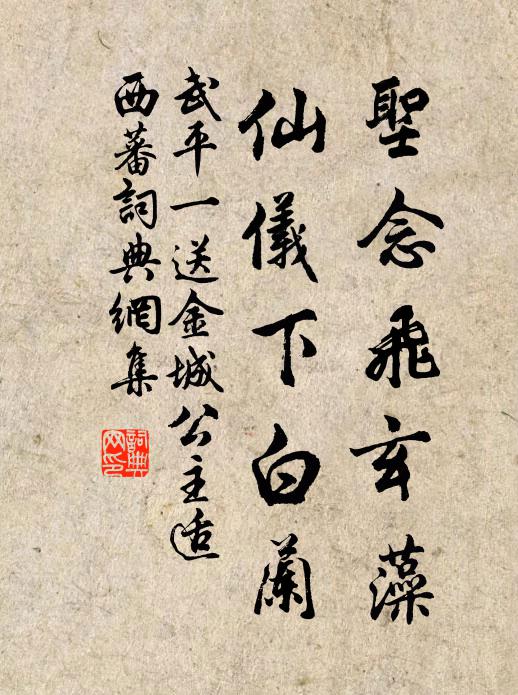 聖念飛玄藻
仙儀下白蘭
武平一送金城公主适
西蕃詞典網集
詞典网印